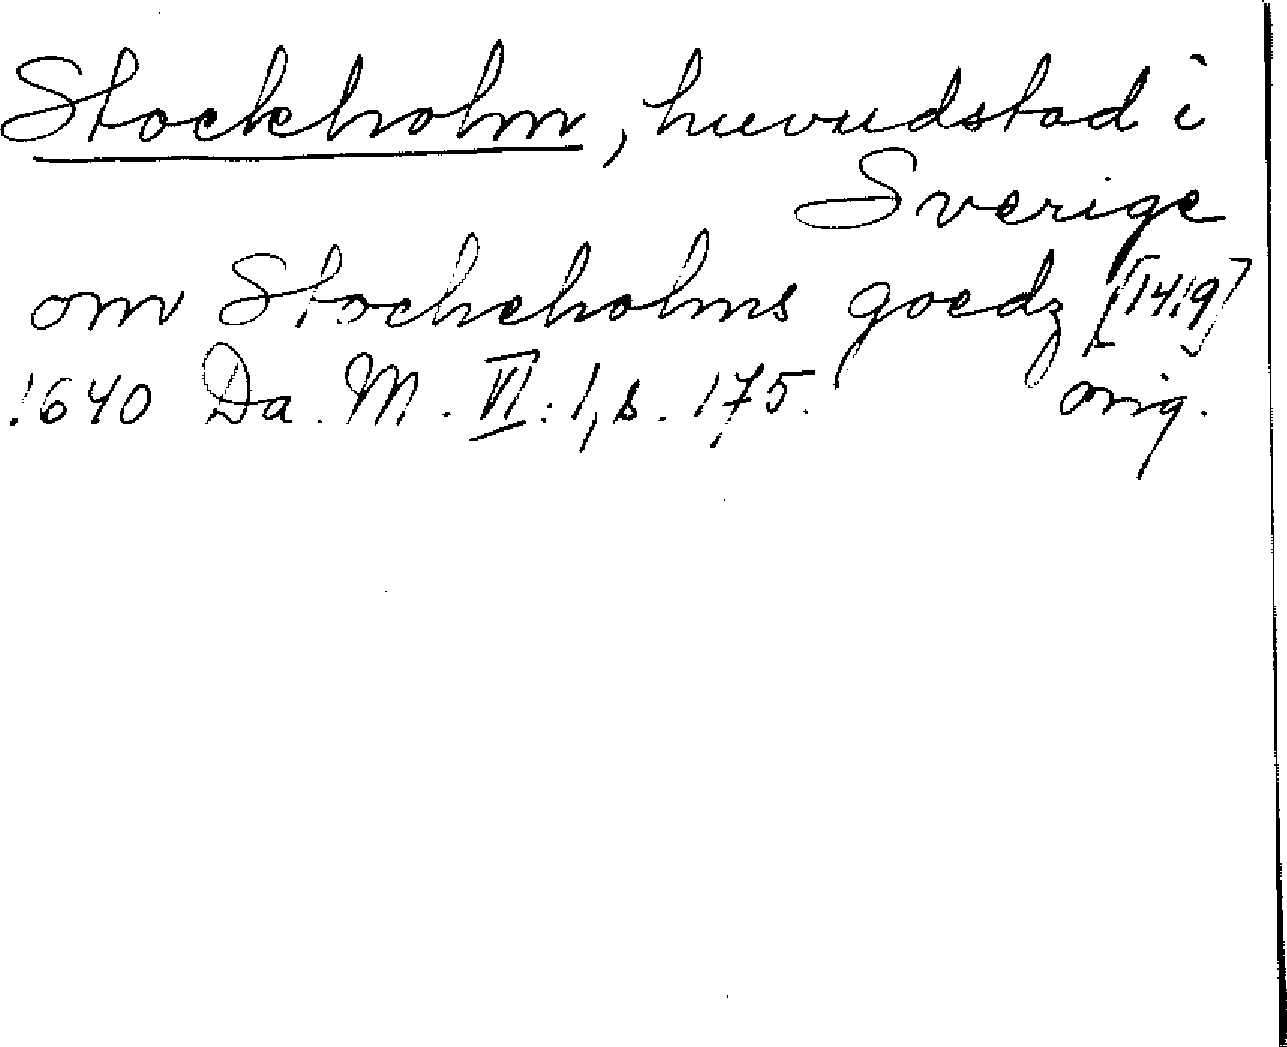 Stockholm, huvudstad i
Sverige
om Stockeholms goedz [1419]
1640 Da. M. VI: 1, s. 175. orig.